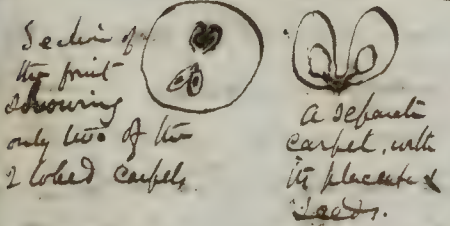 Section of
the fruit
showing
only two of the
2 lobed carpels.
a separate
carpel, with
its placenta &
seeds.